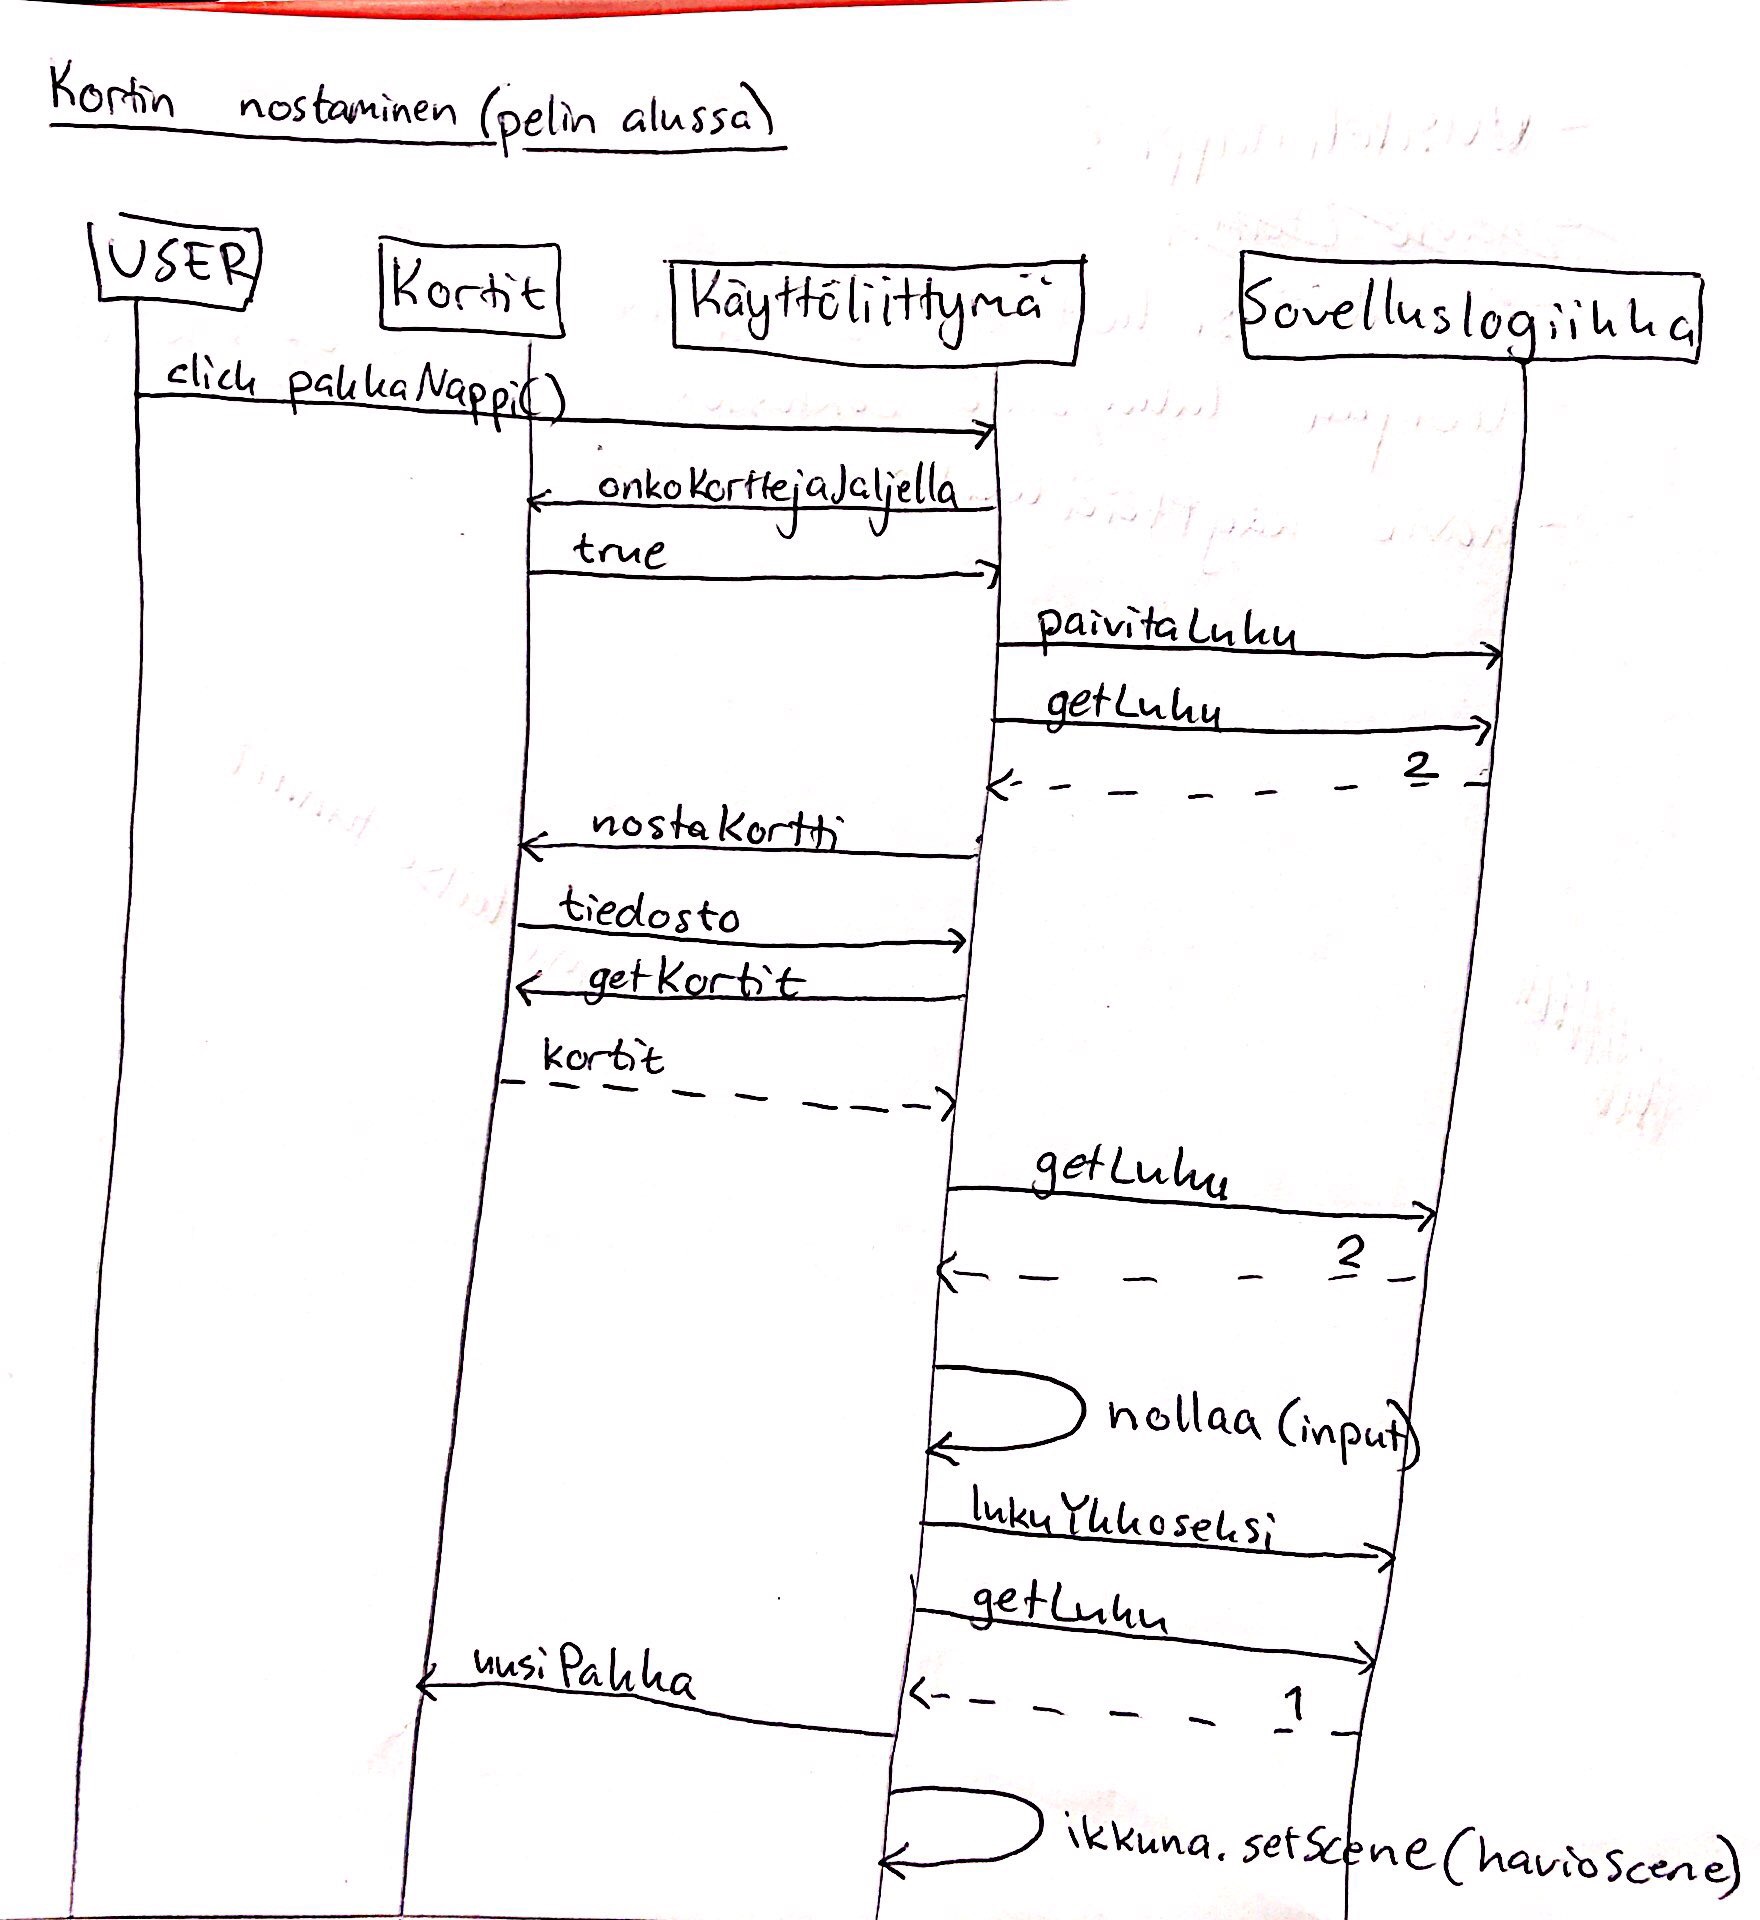 Kortin nostaminen (pelin alussa)
USER
Kortit
Käyttöliittymä
Sovelluslogiikka
click pakkaNappi()
onkoKorttejaJaljella
true
paivitaLuku
getLuku
2
nostaKortti
tiedosto
getKortit
kortit
getLuku
2
nollaa (input)
lukuYkkoseksi
getLuku
uusiPakka
1
ikkuna.setScene(havioScene)